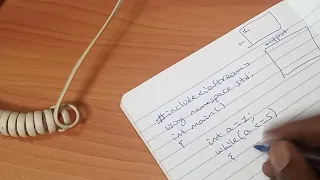 output
#include<iostream>
using namespace std;
int main()
{
int a=1;
while(a<=5)
{